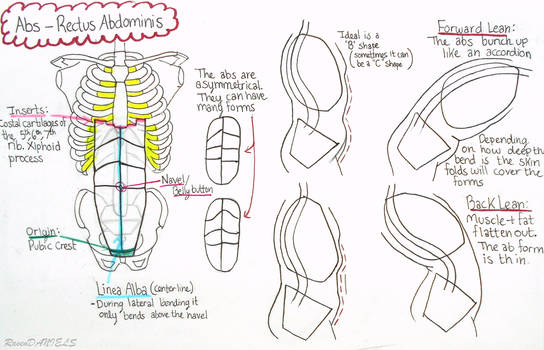 Abs - Rectus Abdominis
Inserts:
Costal cartilages of
the 5th, 6th, 7th
rib. Xiphoid
process
Origin:
Pubic Crest
Navel/
Belly button
Linea Alba (center line)
- During lateral bending it
only bends above the navel
The abs are
asymmetrical.
They can have
many forms
Ideal is a
"B" shape
(sometimes it can
be a "C" shape
Forward Lean:
The abs bunch up
like an accordion
Depending
on how deep the
bend is the skin
folds will cover the
forms
Back Lean:
Muscle + fat
flatten out.
The ab form
is thin.
RavenDANIELS